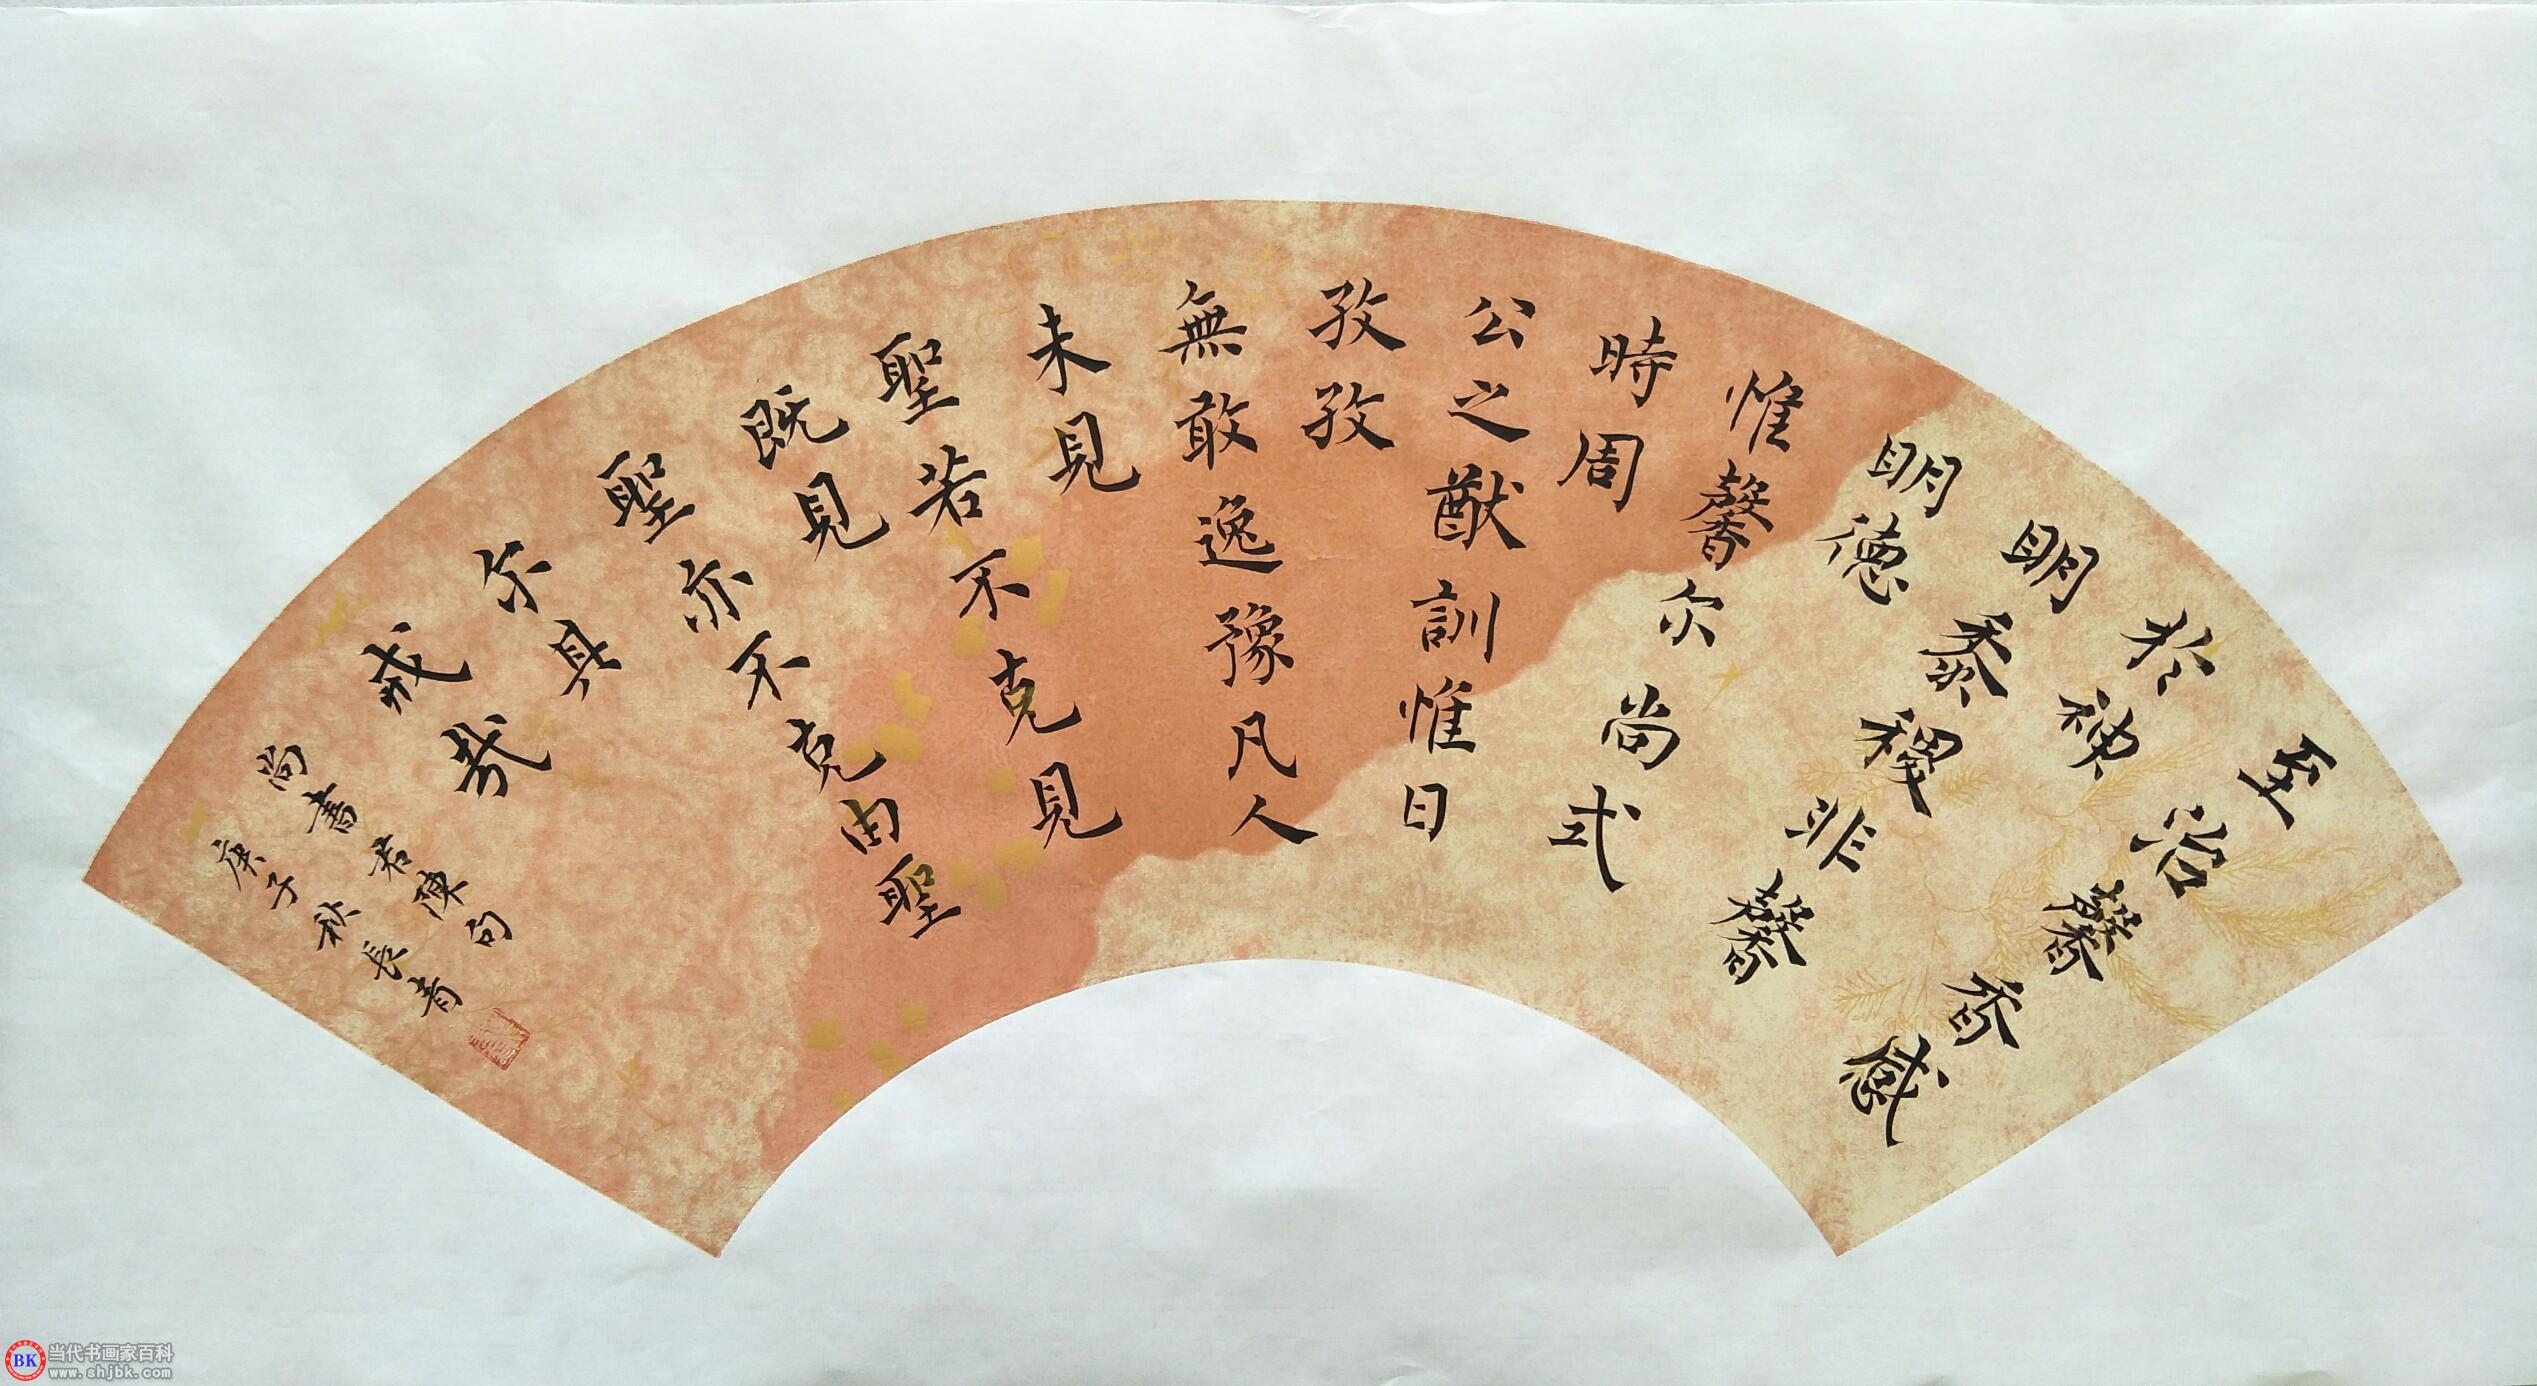 至治馨香感
於神
明黍稷非馨
明德
惟馨尔尚式
時周
公之猷訓惟日
孜孜
無敢逸豫凡人
未見
聖若不克見
既見
聖亦不克由聖
尔其
戒哉
尚書君陳句
庚子秋長青
当代书画家百科
BK
www.shjbk.com